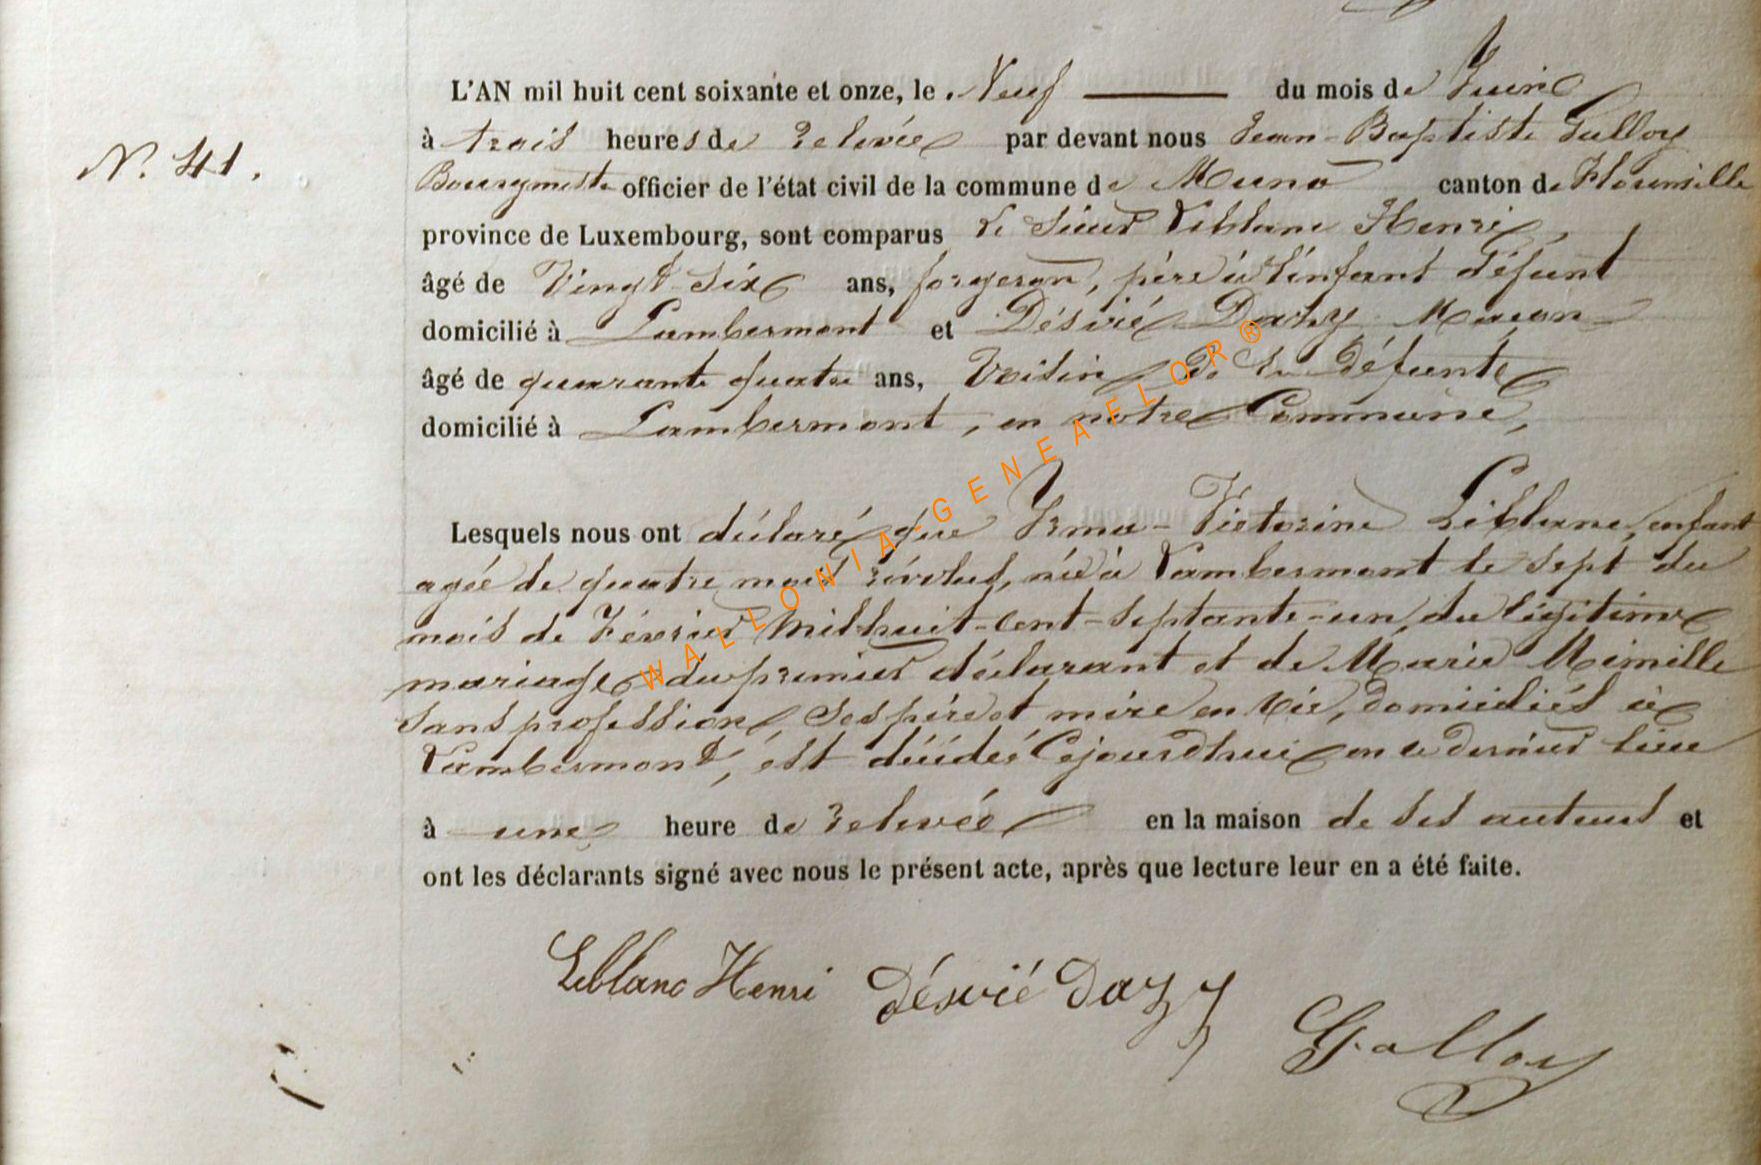 L'AN mil huit cent soixante et onze, le Neuf du mois de Juin
N. 41.
à trois heures de relevée par devant nous Jean-Baptiste Galloy
Bourgmestre officier de l'état civil de la commune de Muno canton de Florenville
province de Luxembourg, sont comparus le Sieur Leblanc Henri,
âgé de Vingt Six ans, forgeron, père à l'enfant défunt
domicilié à Lambermont et Désiré Dazy Maçon
âgé de quarante quatre ans, Voisin de la défunte
domicilié à Lambermont, en notre Commune,
Lesquels nous ont déclaré que Irma-Victorine Leblanc, enfant
agée de quatre mois révolus, née à Lambermont le sept du
mois de Février Mil huit-cent-septante-un, du légitime
mariage du premier déclarant et de Marie Mimille
sans profession, ses père et mère en vie, domiciliés à
Lambermont, est décédée Cejourd'hui en ce dernier lieu
à une heure de relevée en la maison de ses auteurs et
ont les déclarants signé avec nous le présent acte, après que lecture leur en a été faite.
Leblanc Henri Désiré Dazy
Galloy
WALLONIA-GENEAFLOR®